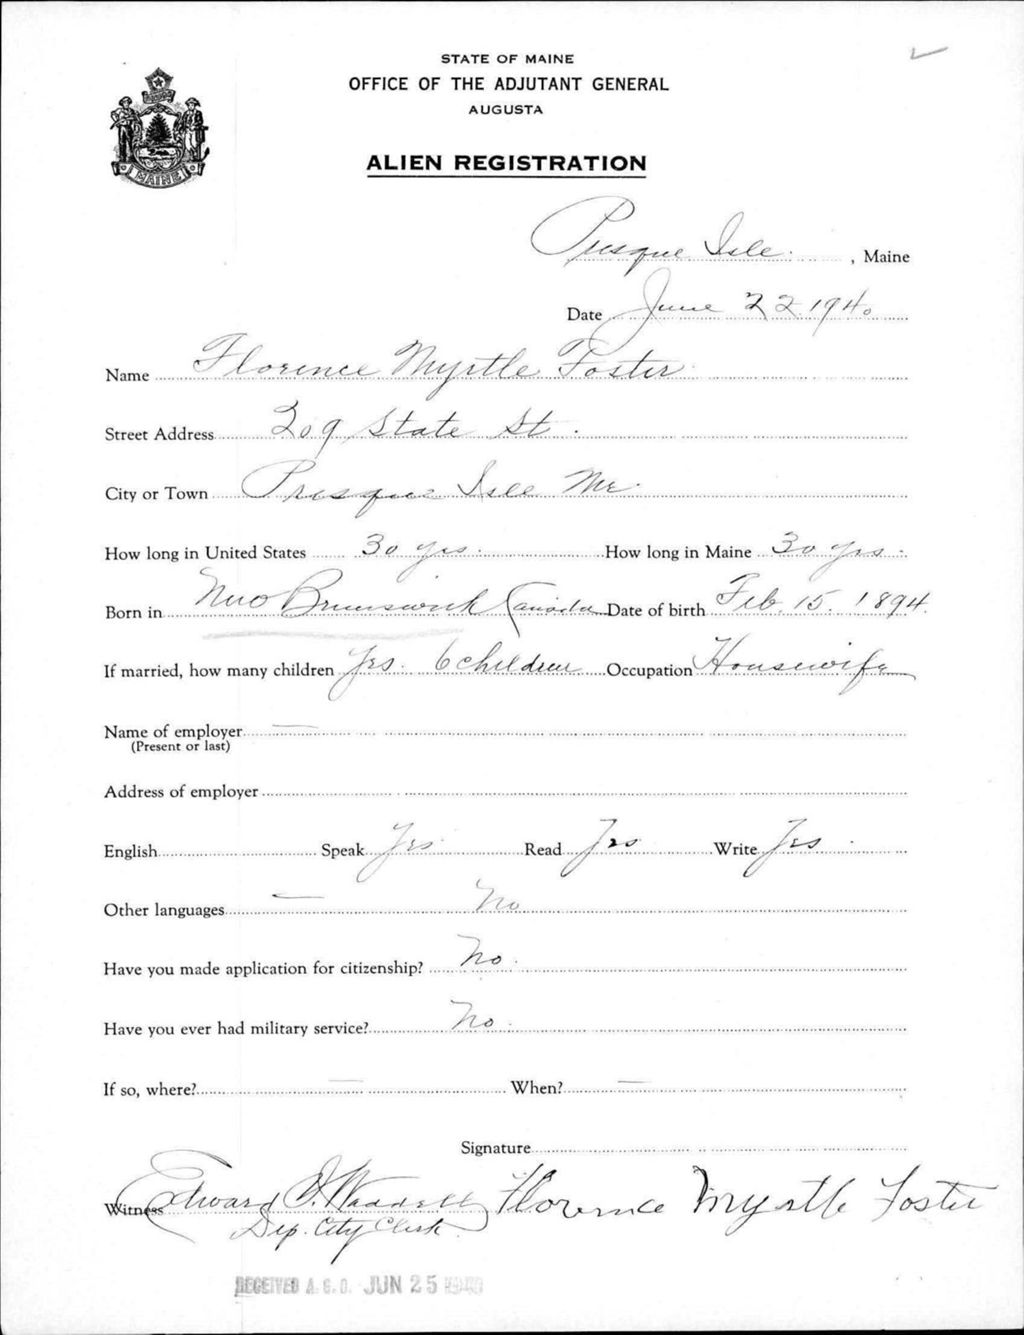 STATE OF MAINE
OFFICE OF THE ADJUTANT GENERAL
AUGUSTA
ALIEN REGISTRATION
MAINE
Presque Isle, Maine
Date June 22 1940
Name Florence Myrtle Foster
Street Address 209 State St.
City or Town Presque Isle Me.
How long in United States 30 yrs. How long in Maine 30 yrs.
Born in New Brunswick Canada Date of birth Feb. 15. 1894.
If married, how many children yes. 6 children Occupation Housewife
Name of employer —
(Present or last)
Address of employer
English Speak Yes Read Yes Write Yes
Other languages — No
Have you made application for citizenship? No.
Have you ever had military service? No.
If so, where? — When? —
Signature
Witness Edward I. Waddell Florence Myrtle Foster
Dep. City Clerk
RECEIVED A.G.O. JUN 25 1940